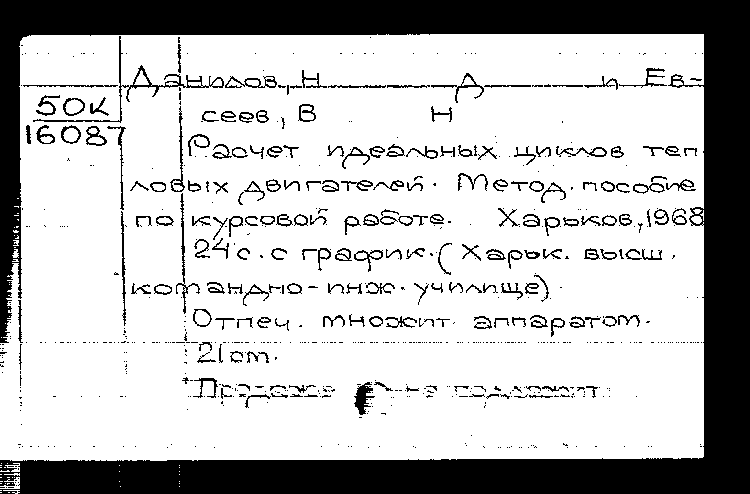 Данилов, Н Д и Ев-
50К
сеев, В Н
16087
Расчет идеальных циклов теп-
ловых двигателей. Метод. пособие
по курсовой работе. Харьков, 1968
24 с. с график. (Харьк. высш.
командно-инж. училище).
Отпеч. множит. аппаратом.
21 см.
Продаже не подлежит